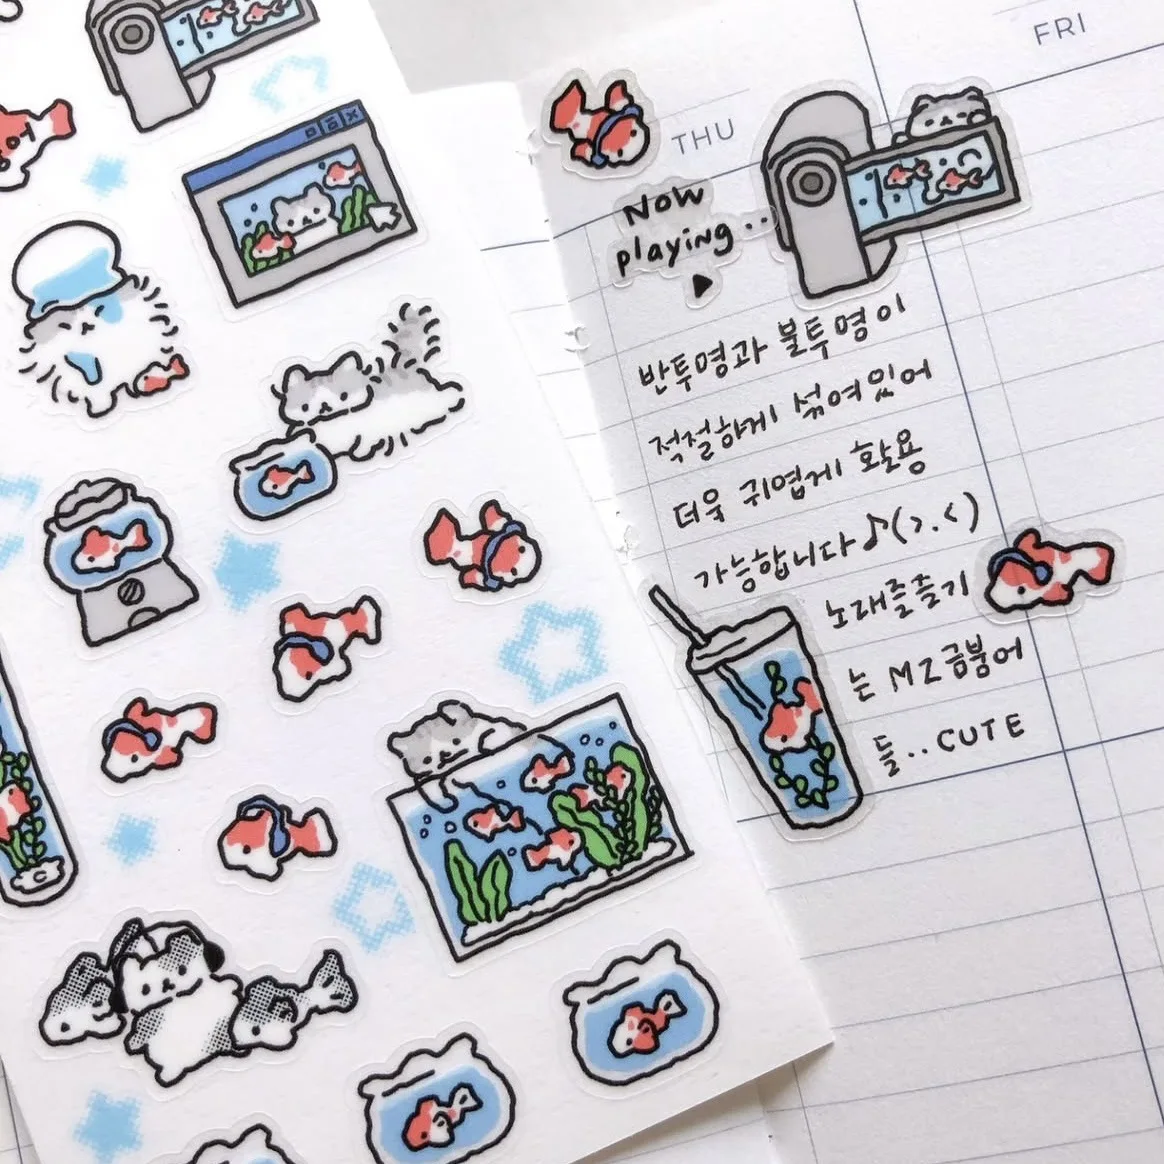 FRI
THU
Now
playing..
반투명과 불투명이
적절하게 섞여있어
더욱 귀엽게 활용
가능합니다♪(>.<)
노래즐즐기
는 MZ금붕어
들..CUTE